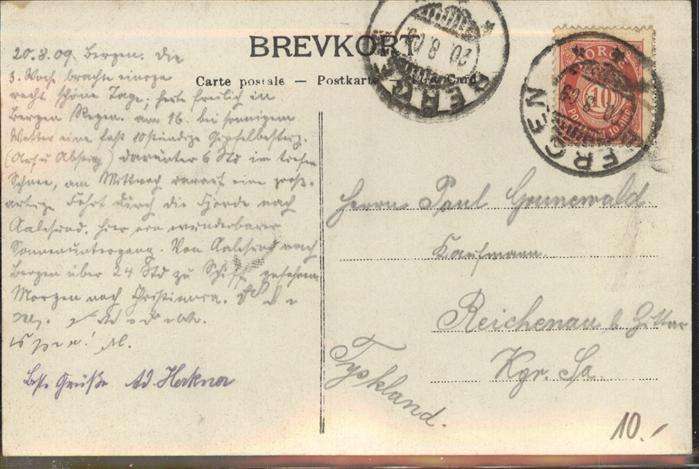 BREVKORT
Carte postale – Postkarte – Card
NORGE
10
BERGEN
20 8 09
BERGEN
20 8 09
20.8.09. Bergen. Die
3. Woche brachte einige
recht schöne Tage; heute freilich in
Bergen Regen. Am 16. bei sonnigem
Wetter eine fast 10stündige
(Auf u Abstieg) darunter 6 Std im
Schnee, am Mittwoch darauf eine groß-
artige Fahrt durch die Fjorde nach
Aalesund. Hier ein wunderbarer
Sonnenuntergang. Von Aalesund nach
Bergen über 24 Std zu Schiff
Morgen nach Christiania.
Bste Grüße
Herrn Paul Grunewald
Kaufmann
Reichenau b Zittau
Kgr. Sa
Tyskland.
10.-